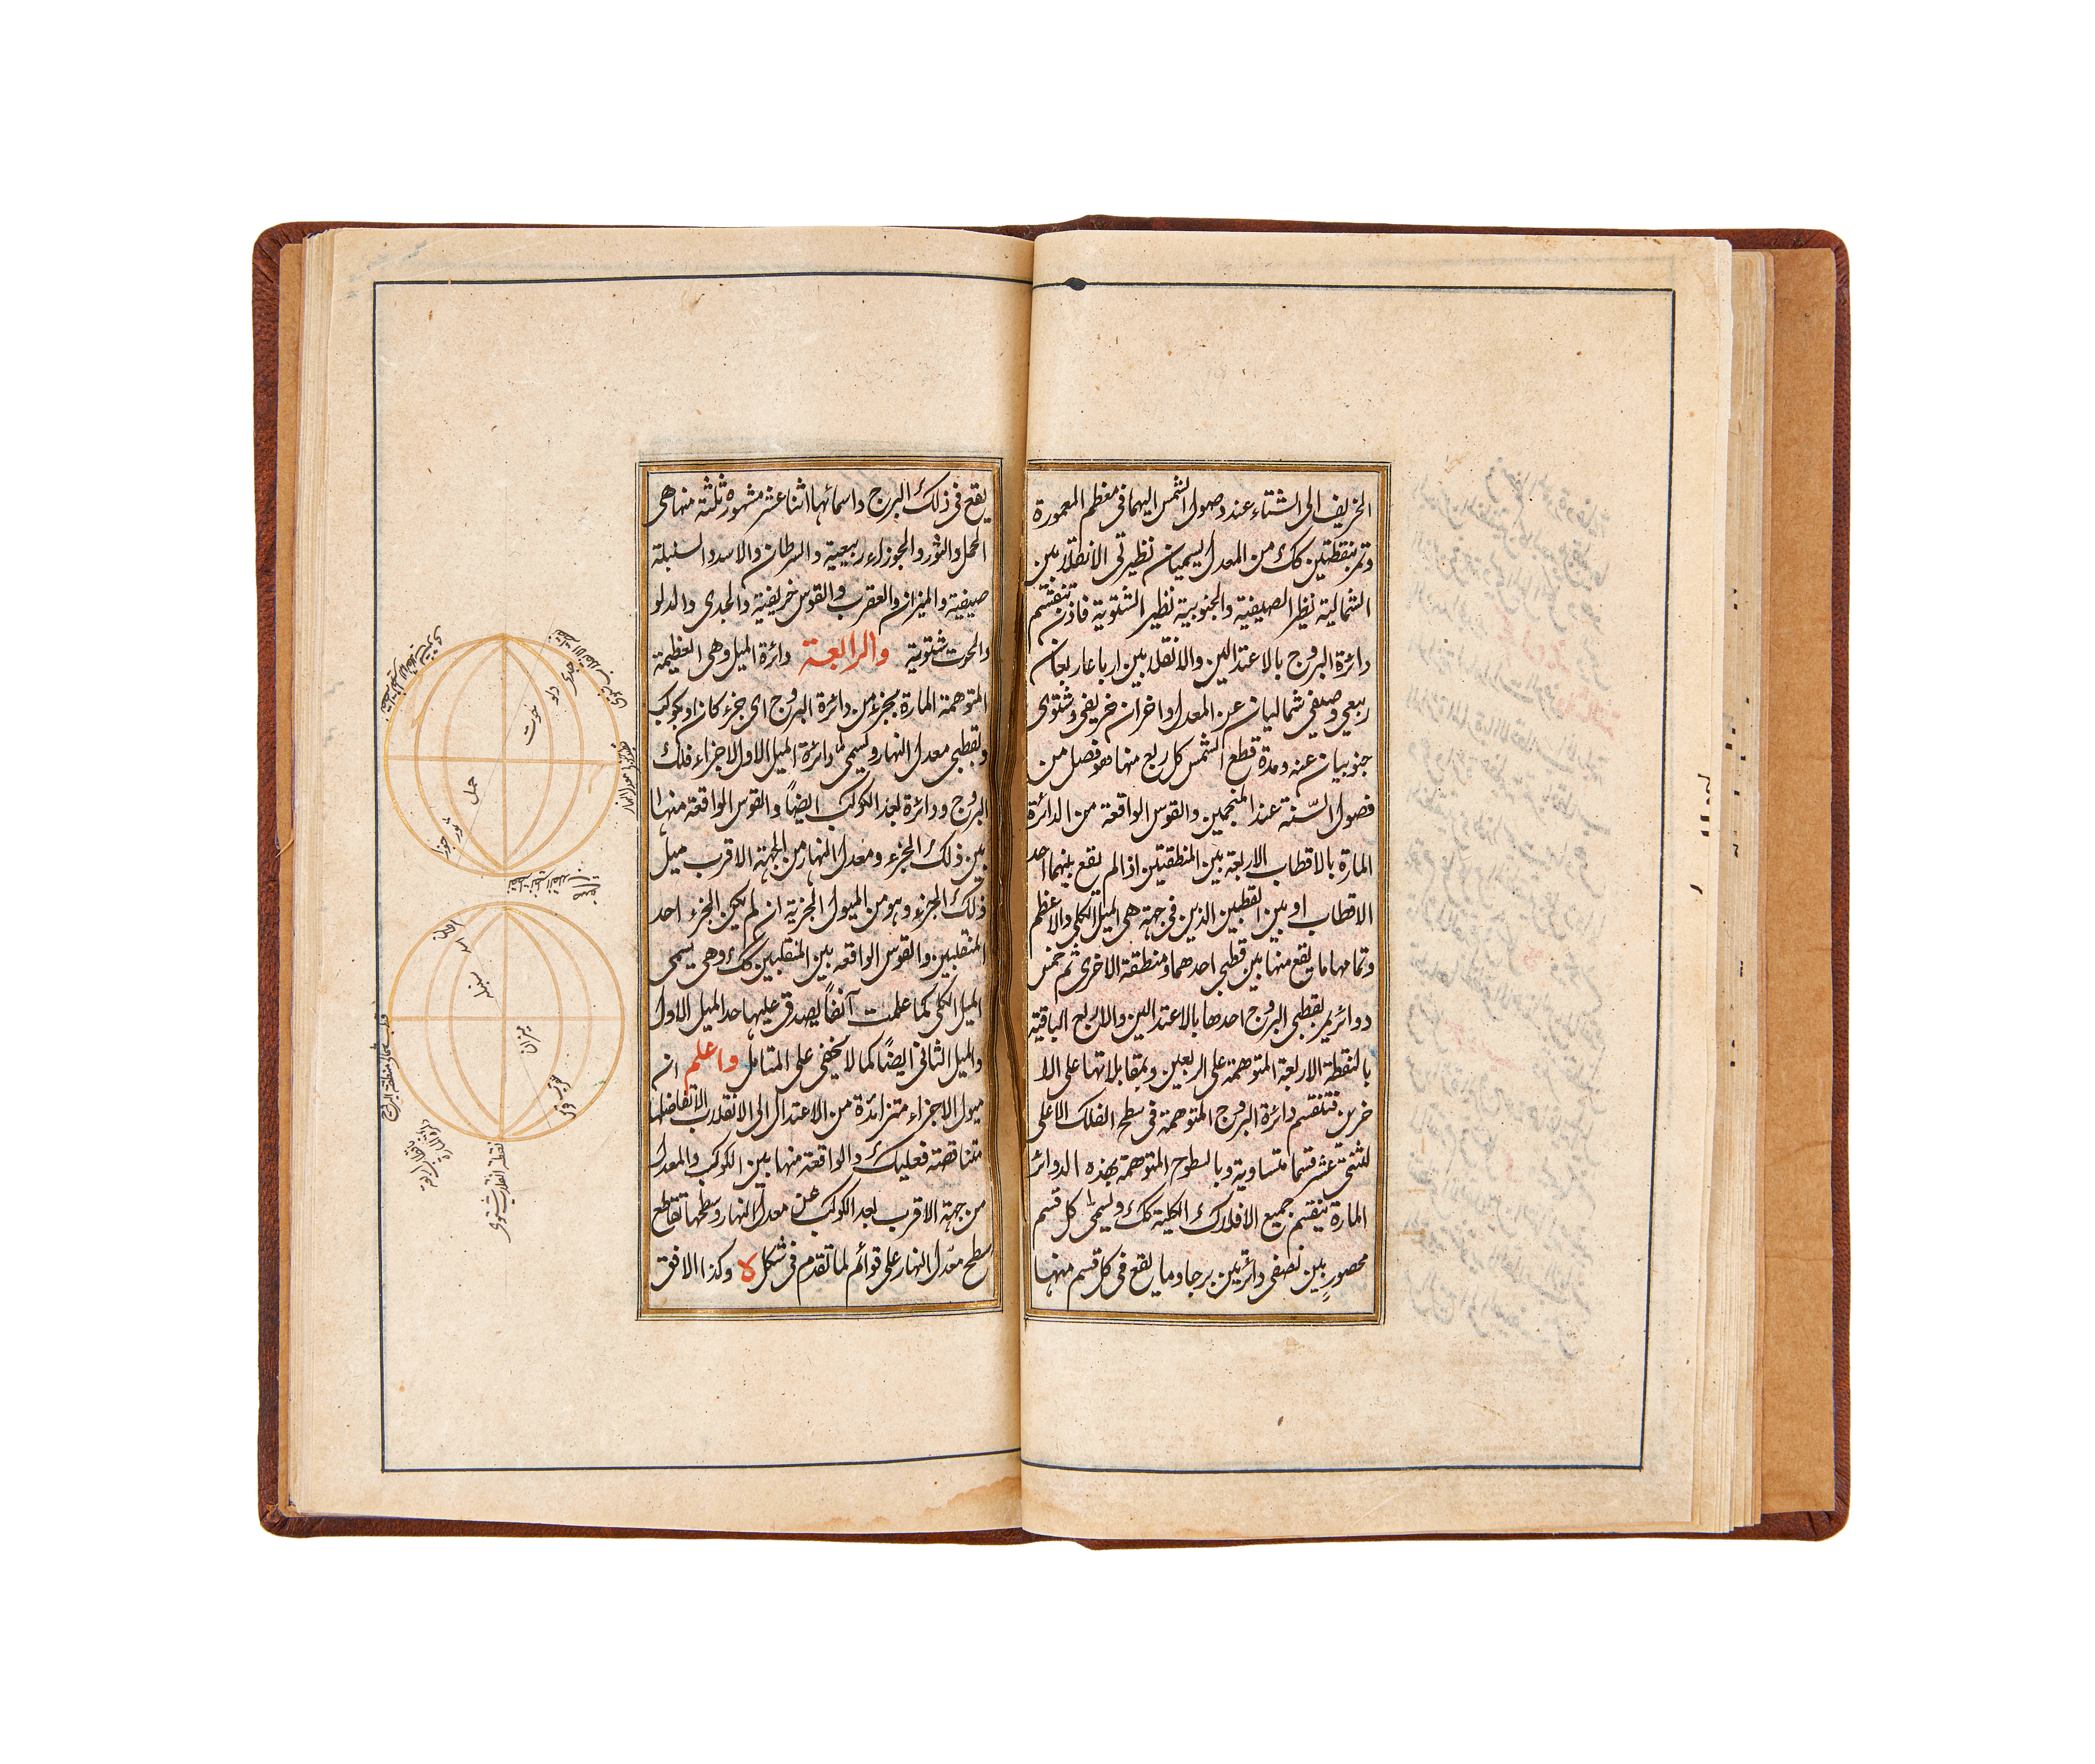 الخريف الى الشتاء عند وصول الشمس اليهما فى معظم المعمورة
وتمر بنقطتين كك من المعدل يسميان نظيرتى الانقلابين
الشمالية نظير الصيفية والجنوبية نظير الشتوية فاذن تنقسم
دائرة البروج بالاعتدالين والانقلابين ارباعا ربعان
ربيعى وصيفى شماليان عن المعدل واخران خريفى وشتوى
جنوبيان عنه ومدة قطع الشمس كل ربع منها هو فصل من
فصول السّنة عند المنجمين والقوس الواقعة من الدائرة
المارة بالاقطاب الاربعة بين المنطقتين اذا لم يقع بينهما احد
الاقطاب او بين القطبين الذين فى جهة هى الميل الكلى والاعظم
وتمامها ما يقع منها بين قطبى احدهما ومنطقة الاخرى ثم خمس
دوائر يمر بقطبى البروج احدها بالاعتدالين والاربع الباقية
بالنقطة الاربعة المتوهمة على الربعين وبمقابلاتها على الا
خرين فتنقسم دائرة البروج المتوهمة فى سطح الفلك الاعلى
لثنتى عشر قسما متساوية وبالسطوح المتوهمة بهذه الدوائر
المارة ينقسم جميع الافلاك الكلية كك ويسمى كل قسم
محصور بين نصفى دائرتين برجا وما يقع فى كل قسم منها
يقع فى ذلك البرج واسمائها اثنا عشر مشهورة ثلثة منها هى
الحمل والثور والجوزاء ربيعية والسرطان والاسد والسنبلة
صيفية والميزان والعقرب والقوس خريفية والجدى والدلو
والحوت شتوية والرابعة دائرة الميل وهى العظيمة
المتوهمة المارة بجزء من دائرة البروج اى جزء كان او بكوكب
وبقطبى معدل النهار ويسمى دائرة الميل الاول لاجزاء فلك
البروج ودائرة بعد الكوكب ايضاً والقوس الواقعة منها
بين ذلك الجزء ومعدل النهار من الجهة الاقرب ميل
ذلك الجزء وهو من الميول الجزئية ان لم يكن الجزء احد
المنقلبين والقوس الواقعة بين المنقلبين كك وهى يسمى
الميل الكلى كما علمت آنفاً يصدق عليها حد الميل الاول
والميل الثانى ايضًا كما لا يخفى على المتامل واعلم ان
ميول الاجزاء متزائدة من الاعتدال الى الانقلاب الا تفاضلها
متناقصة فعليك والواقعة منها بين الكوكب والمعدل
من جهة الاقرب بعد الكوكب عن معدل النهار وسطحها تقاطع
سطح معدل النهار على قوائم لما تقدم فى شكل لا وكذا الافق
جدى
دلو
حوت
حمل
ثور
جوزا
اسد
سنبله
ميزان
نقطة انقلاب شتوى